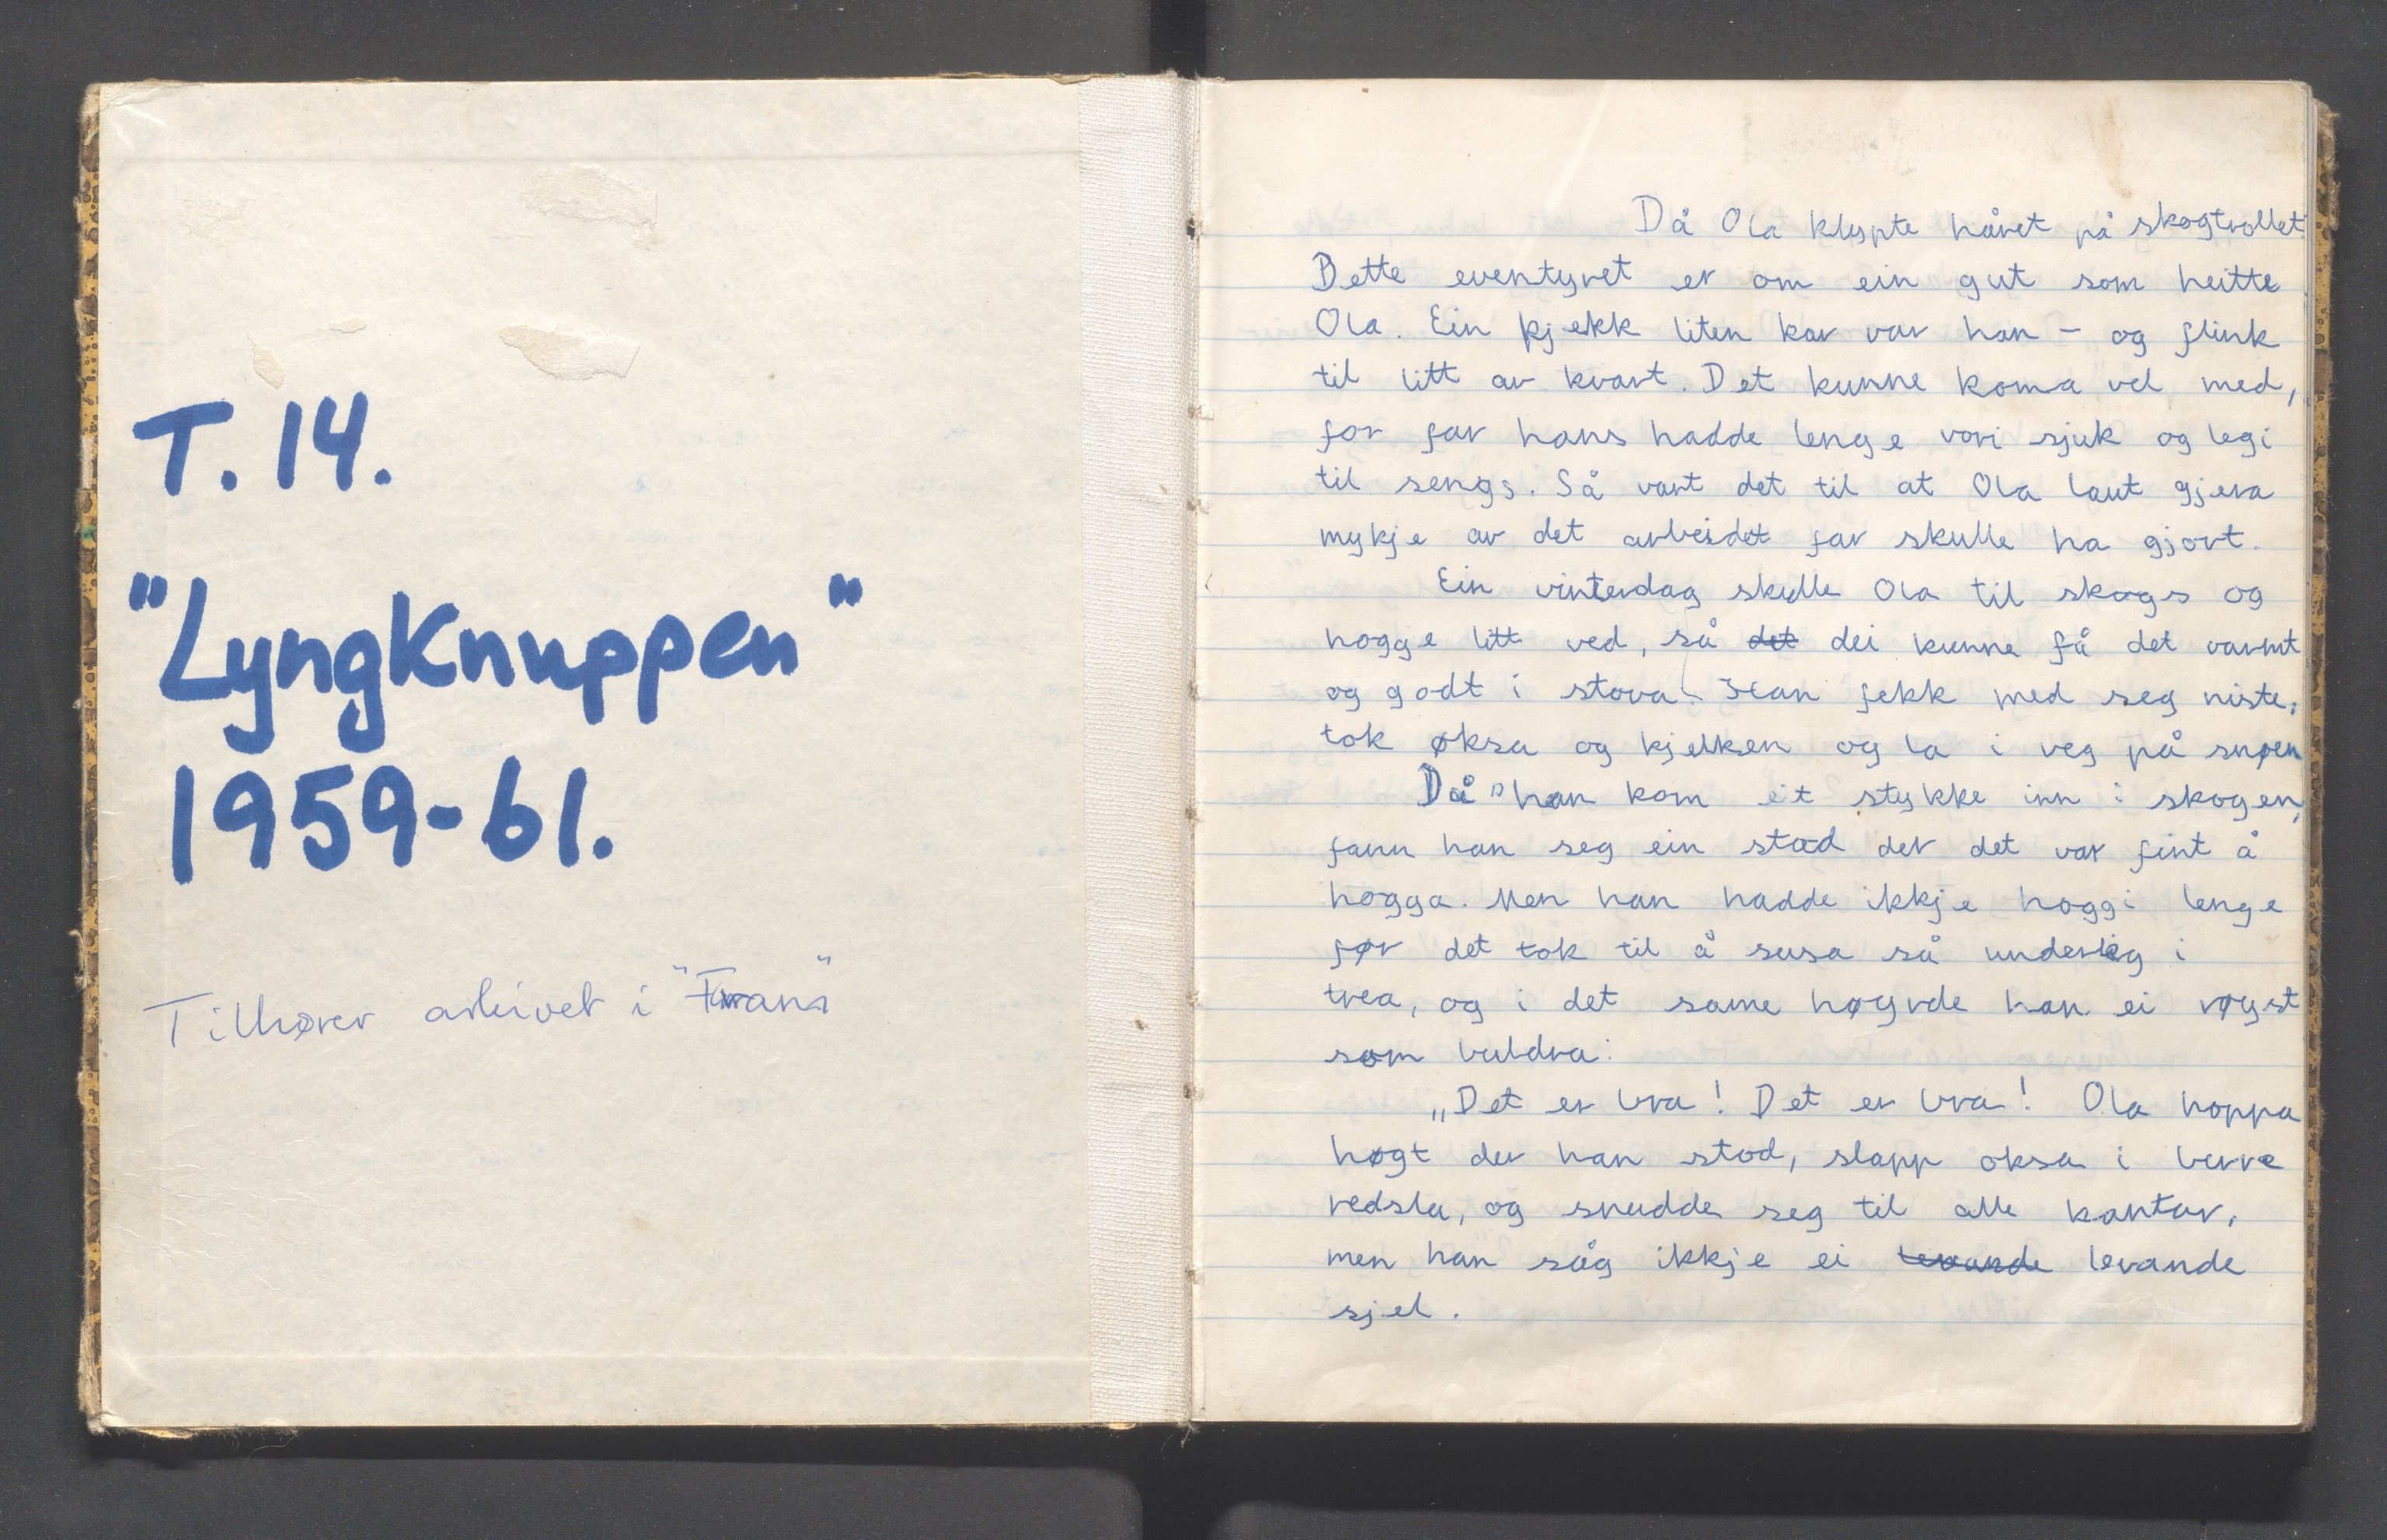 T. 14.
"Lyngknuppen"
1959-61.
Tilhører arkivet i "Fram"
Då Ola klypte håret på skogtrollet
Dette eventyret er om ein gut som heitte
Ola. Ein kjekk liten kar var han - og flink
til litt av kvart. Det kunne koma vel med,
for far hans hadde lenge vori sjuk og legi
til sengs. Så vart det til at Ola laut gjera
mykje av det arbeidet far skulle ha gjort.
Ein vinterdag skulle Ola til skogs og
hogge litt ved, så det dei kunne få det varmt
og godt i stova. Han fekk med seg niste,
tok øksa og kjelken og la i veg på snøen
Då han kom eit stykke inn i skogen,
fann han seg ein stad der det var fint å
hogga. Men han hadde ikkje hoggi lenge
før det tok til å susa så underleg i
trea, og i det same høyrde han ei røyst
som buldra:
„Det er bra! Det er bra! Ola hoppa
høgt der han stod, slapp oksa i berre
redsla, og snudde seg til alle kantar,
men han såg ikkje ei levande levande
sjel.